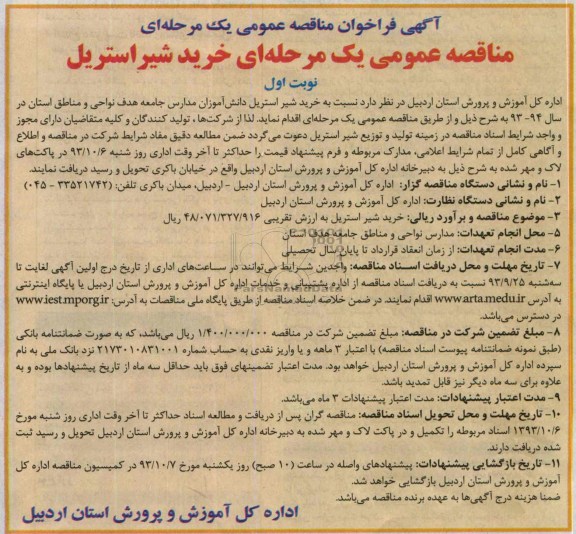 آگهی فراخوان مناقصه عمومی یک مرحله‌ای
مناقصه عمومی یک مرحله‌ای خرید شیر استریل
نوبت اول
اداره کل آموزش و پرورش استان اردبیل در نظر دارد نسبت به خرید شیر استریل دانش‌آموزان مدارس جامعه هدف نواحی و مناطق استان در
سال ۹۴- ۹۳ به شرح ذیل و از طریق مناقصه عمومی یک مرحله‌ای اقدام نماید. لذا از شرکت‌ها، تولید کنندگان و کلیه متقاضیان دارای مجوز
و واجد شرایط اسناد مناقصه در زمینه تولید و توزیع شیر استریل دعوت می‌گردد ضمن مطالعه دقیق مفاد شرایط شرکت در مناقصه و اطلاع
و آگاهی کامل از تمام شرایط اعلامی، مدارک مربوطه و فرم پیشنهاد قیمت را حداکثر تا آخر وقت اداری روز شنبه ۹۳/۱۰/۶ در پاکت‌های
لاک و مهر شده به شرح ذیل به دبیرخانه اداره کل آموزش و پرورش استان اردبیل واقع در خیابان باکری تحویل و رسید دریافت نمایند.
۱- نام و نشانی دستگاه مناقصه گزار: اداره کل آموزش و پرورش استان اردبیل - اردبیل، میدان باکری تلفن: (۳۳۵۲۱۷۴۲ - ۰۴۵)
۲- نام و نشانی دستگاه نظارت: اداره کل آموزش و پرورش استان اردبیل
۳- موضوع مناقصه و برآورد ریالی: خرید شیر استریل به ارزش تقریبی ۴۸/۰۷۱/۳۲۷/۹۱۶ ریال
۵- محل انجام تعهدات: مدارس نواحی و مناطق جامعه هدف استان
۶- مدت انجام تعهدات: از زمان انعقاد قرارداد تا پایان سال تحصیلی
۷- تاریخ مهلت و محل دریافت اسناد مناقصه: واجدین شرایط می‌توانند در ساعت‌های اداری از تاریخ درج اولین آگهی لغایت تا
سه‌شنبه ۹۳/۹/۲۵ نسبت به دریافت اسناد مناقصه از اداره پشتیبانی و خدمات اداره کل آموزش و پرورش استان اردبیل یا پایگاه اینترنتی
به آدرس www.arta.medu.ir اقدام نمایند. در ضمن خلاصه اسناد مناقصه از طریق پایگاه ملی مناقصات به آدرس: www.iest.mporg.ir
در دسترس می‌باشد.
۸- مبلغ تضمین شرکت در مناقصه: مبلغ تضمین شرکت در مناقصه ۱/۴۰۰/۰۰۰/۰۰۰ ریال می‌باشد، که به صورت ضمانتنامه بانکی
(طبق نمونه ضمانتنامه پیوست اسناد مناقصه) با اعتبار ۳ ماهه و یا واریز نقدی به حساب شماره ۲۱۷۳۰۱۰۸۳۱۰۰۱ نزد بانک ملی به نام
سپرده اداره کل آموزش و پرورش استان اردبیل خواهد بود. مدت اعتبار تضمینهای فوق باید حداقل سه ماه از تاریخ پیشنهادها بوده و به
علاوه برای سه ماه دیگر نیز قابل تمدید باشد.
۹- مدت اعتبار پیشنهادات: مدت اعتبار پیشنهادات ۳ ماه می‌باشد.
۱۰- تاریخ مهلت و محل تحویل اسناد مناقصه: مناقصه گران پس از دریافت و مطالعه اسناد حداکثر تا آخر وقت اداری روز شنبه مورخ
۱۳۹۳/۱۰/۶ اسناد مربوطه را تکمیل و در پاکت لاک و مهر شده به دبیرخانه اداره کل آموزش و پرورش استان اردبیل تحویل و رسید ثبت
شده دریافت دارند.
۱۱- تاریخ بازگشایی پیشنهادات: پیشنهادهای واصله در ساعت (۱۰ صبح) روز یکشنبه مورخ ۹۳/۱۰/۷ در کمیسیون مناقصه اداره کل
آموزش و پرورش استان اردبیل بازگشایی خواهد شد.
ضمنا هزینه درج آگهی‌ها به عهده برنده مناقصه می‌باشد.
اداره کل آموزش و پرورش استان اردبیل